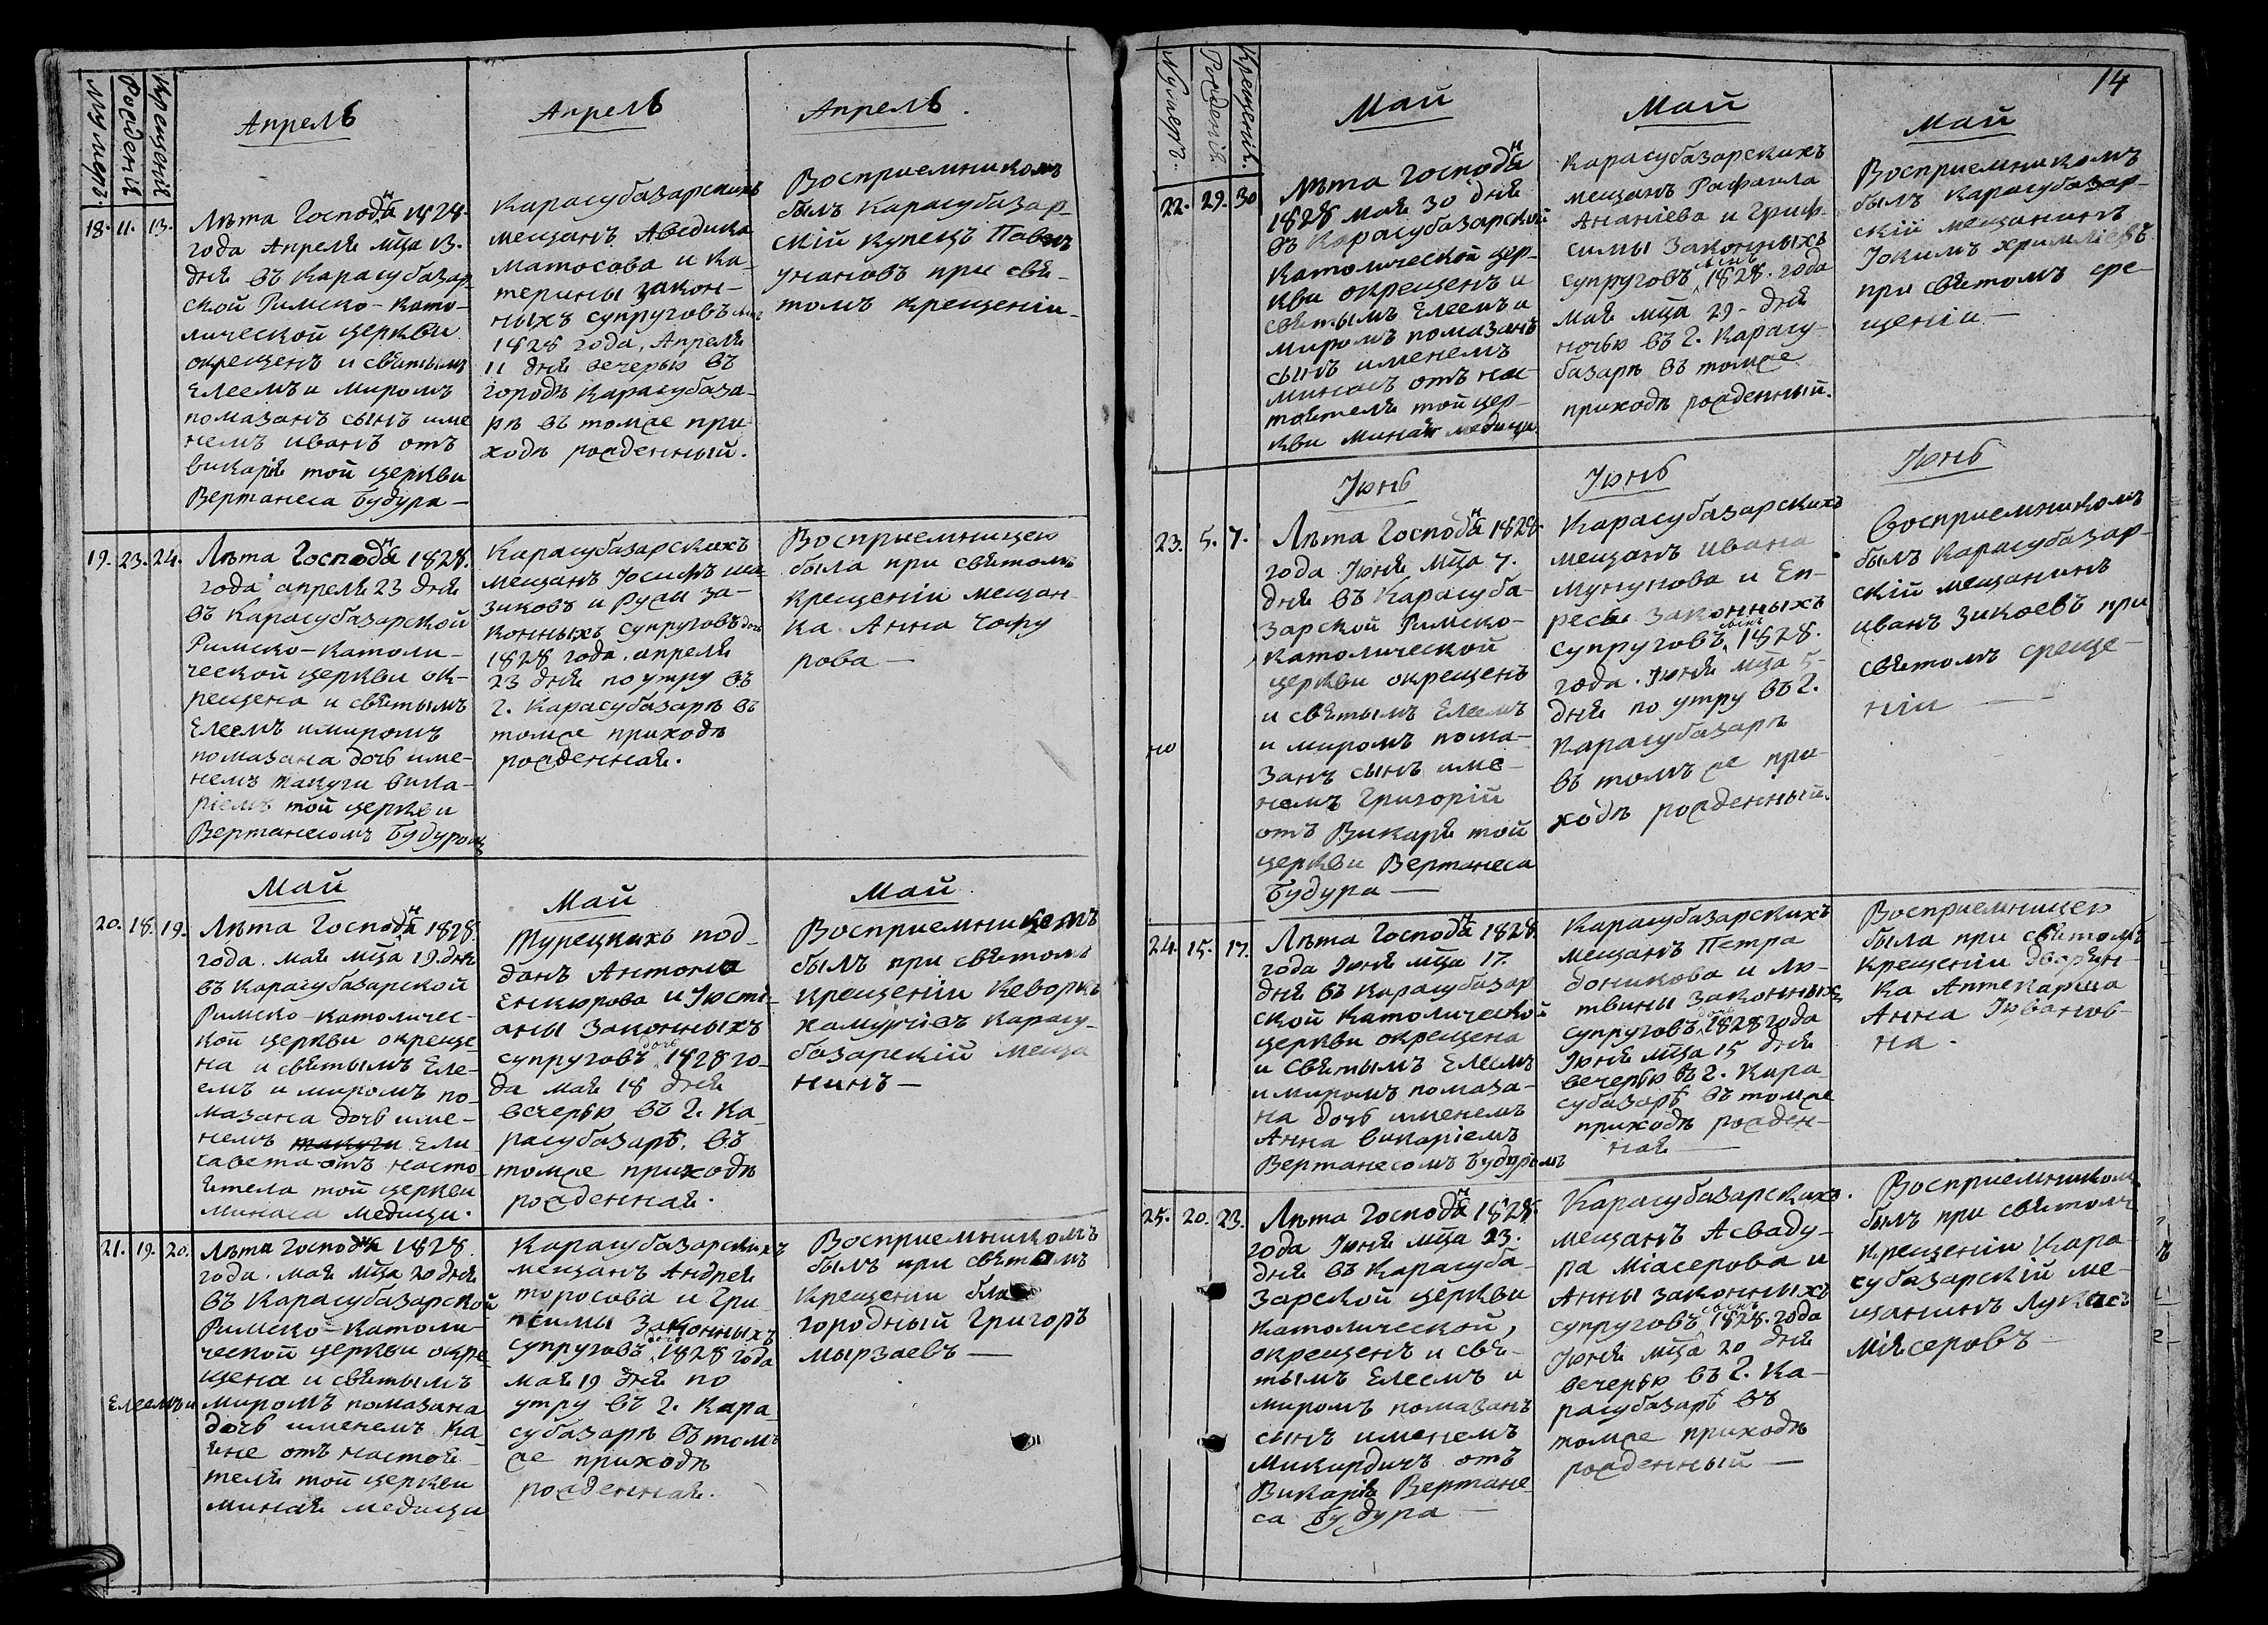 Нумеръ.
Рожденія
Крещенія
Апрель
Апрель
Апрель.
18. 11. 13.
Лѣта Господня 1828.
года Апреля мца 13.
дня въ Карасубазар
ской Римско-Като-
лической церкви
окрещенъ и святымъ
Елеемъ и миромъ
помазанъ сынъ име
немъ Иванъ отъ
викарія той церкви
Вертанеса Будура —
Карасубазарскихъ
мещанъ Аведика
Матосова и Ка-
терины закон-
ныхъ супруговъ
1828 года, Апреля
11 дня вечерью въ
городѣ Карасубаза-
рѣ въ томже при-
ходѣ рожденный.
Восприемникомъ
былъ Карасубазар-
скій купецъ Павелъ
Унановъ при свя-
томъ крещеніи.
19. 23. 24.
Лѣта Господня 1828.
года апреля 23 дня
въ Карасубазарской
Римско-Католи-
ческой церкви ок-
рещена и святымъ
Елеемъ имиромъ
помазана дочь име-
немъ Такуги вика-
ріемъ той церкви
Вертанесомъ Будуромъ
Карасубазарскихъ
мещанъ Іосифъ
зиковъ и за-
конныхъ супруговъ дочь
1828 года. апреля
23 дня по утру въ
г. Карасубазарѣ въ
томже приходѣ
рожденная.
Восприемницею
была при святомъ
Крещеніи мещан-
ка Анна Чофу
рова —
Май
Май
Май.
20. 18. 19.
Лѣта Господня 1828.
года. мая мца 19. дня
въ Карасубазарской
Римско-Католичес-
кой церкви окреще-
на и святымъ Еле-
емъ и миромъ по-
мазана дочь име-
немъ такуги Ели
савета отъ насто-
ятеля той церкви
Минаса Медици.
Турецкихъ под-
данъ Антона
Енкюрова и Юсти-
аны законныхъ
супруговъ дочь 1828 го-
да мая 18 дня
вечерью въ г. Ка-
расубазарѣ, въ
томже приходѣ
рожденная.
Восприемникомъ
былъ при святомъ
крещеніи Кеворкъ
хамурчіевъ Карасу-
базарскій меща
нинъ —
21. 19. 20.
Лѣта Господня 1828.
года. мая мца 20 дня
въ Карасубазарской
Римско-Католи-
ческой церкви окре-
щена и святымъ
Елеемъ и миромъ помазана
дочь именемъ Ка-
яне отъ настоя-
теля той церкви
Миная Медици
Карасубазарскихъ
мещанъ Андрея
торосова и Гри
псимы законныхъ
супруговъ дочь 1828 года
мая 19 дня по
утру въ г. Кара
субазарѣ въ томъ
же приходѣ
рожденная.
Восприемникомъ
былъ при святомъ
Крещеніи
городный Григоръ
мырзаевъ —
14
Нумеръ.
Рожденія
Крещенія.
Май
Май
Май
22. 29. 30
Лѣта Господня
1828 мая 30 дня
въ Карасубазарской
Католической цер-
кви окрещенъ и
святымъ Елеемъ и
миромъ помазанъ
сынъ именемъ
Минасъ отъ нас-
тоятеля той цер-
кви Миная Медици
Карасубазарскихъ
мещанъ Рафаила
Ананіева и Грип-
симы законныхъ
супруговъ сынъ 1828. года
мая мца 29 - дня
ночью въ г. Карасу-
базарѣ въ томже
приходѣ рожденный.
Восприемникомъ
былъ Карасубазар-
скій мещанинъ
Іокимъ
при святомъ кре-
щеніи —
Іюнь
Іюнь
Іюнь
23. 5. 7.
Лѣта Господня 1828.
года. Іюня мца 7.
дня въ Карасуба-
зарской Римско-
Католической
церкви окрещенъ
и святымъ Елеемъ
и миромъ пома-
занъ сынъ име-
немъ Григорій
отъ Викарія той
церкви Вертанеса
Будура —
Карасубазарскихъ
мещанъ Ивана
Мунунова и Еп-
ресы законныхъ
супруговъ сынъ 1828.
года. Іюня мца 5-
дня по утру въ г.
Карасубазарѣ
въ томъ же при-
ходѣ рожденный.
Восприемникомъ
былъ Карасубазар-
скій мещанинъ
Иванъ Зикоевъ при
святомъ креще-
ніи —
24. 15. 17.
Лѣта Господня 1828.
года Іюня мца 17.
дня въ Карасубазар
ской Католической
церкви окрещена
и Святымъ Елеемъ
и миромъ помаза-
на дочь именемъ
Анна Викаріемъ
Вертанесомъ Будуромъ
Карасубазарскихъ
мещанъ Петра
доникова и Лю-
твины законныхъ
супруговъ дочь 1828 года
Іюня мца 15 дня
вечерью въ г. Кара
субазарѣ въ томже
приходѣ рожден-
ная —
Восприемницею
была при святомъ
Крещеніи дворян-
ка Аптекарша
Анна Іованов-
на.
25. 20. 23.
Лѣта Господня 1828.
года Іюня мца 23.
дня въ Карасуба-
зарской церкви
Католической,
окрещенъ и свя-
тымъ Елеемъ и
миромъ помазанъ
сынъ именемъ
Микирдичъ отъ
Викарія Вертане
са Будура —
Карасубазарскихъ.
мещанъ Асваду-
ра Міасерова и
Анны законныхъ
супруговъ сынъ 1828. года
Іюня мца 20 дня
вечерью въ г. Ка-
расубазарѣ въ
томже приходѣ
рожденный —
Восприемникомъ
былъ при святомъ
Крещеніи Кара-
субазарскій ме-
щанинъ Лукасъ
Міясеровъ —